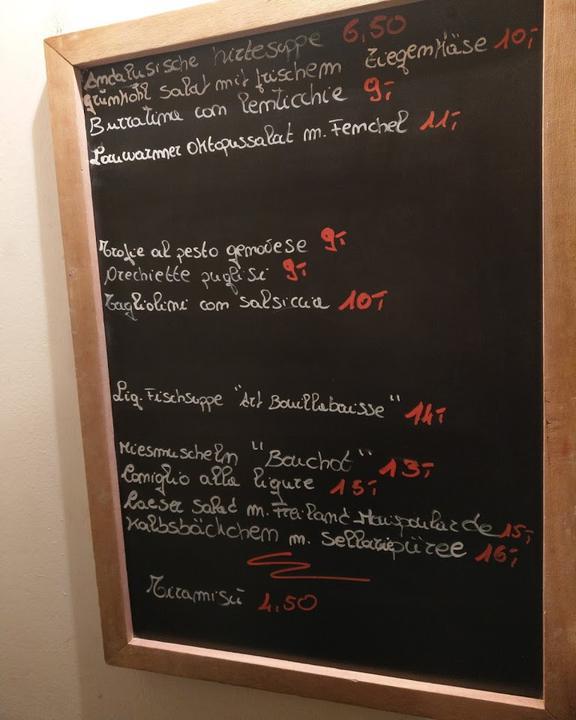 Andalusische Hirtesuppe 6,50
Grünkohl salat mit frischem Ziegenkäse 10,-
Burratina con lenticchie 9,-
Lauwarmer Oktopussalat m. Fenchel 11,-
Trofie al pesto genovese 9,-
Orechiette puglisi 9,-
Tagliolini con salsiccia 10,-
Lig. Fischsuppe "Art Bouillabaisse" 14,-
Miesmuscheln "Bouchot" 13,-
Coniglio alla ligure 15,-
Caeser Salad m. Freiland-Maispoularde 15,-
Kalbsbäckchem m. Selleriepüree 16,-
Tiramisù 4,50